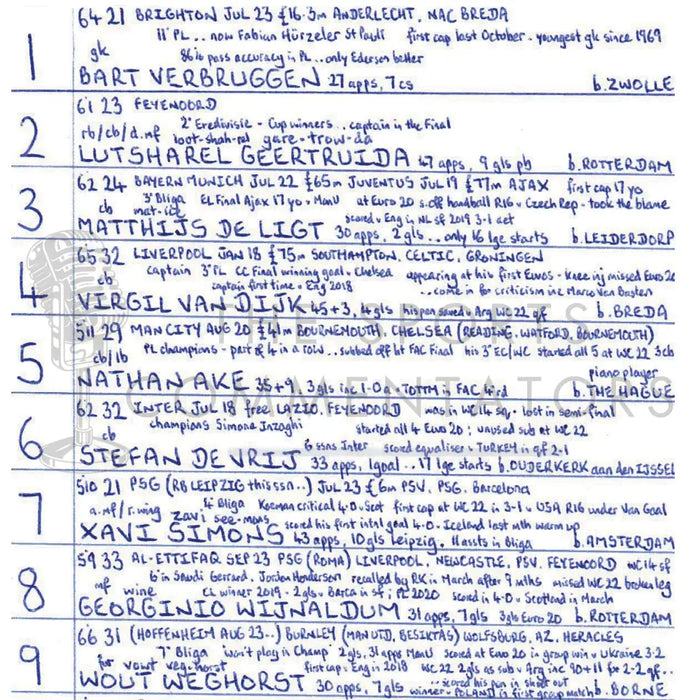 1
64 21 BRIGHTON JUL 23 £16.3m ANDERLECHT, NAC BREDA
11th PL .. now Fabian Hürzeler St Pauli first cap last October - youngest gk since 1969
gk
86% pass accuracy in PL .. only Ederson better
BART VERBRUGGEN 27 apps, 7 cs b. ZWOLLE
2
61 23 FEYENOORD
rb/cb/d.mf 2nd Eredivisie - Cup winners .. captain in the Final
loot-shah-rel gare-trow-da
LUTSHAREL GEERTRUIDA 47 apps, 9 gls pb b. ROTTERDAM
3
62 24 BAYERN MUNICH JUL 22 £65m JUVENTUS JUL 19 £77m AJAX first cap 17 yo
3rd Bliga EL Final Ajax 17 yo - ManU at Euro 20 s.off handball R16 v Czech Rep - took the blame
cb mat-ice scored v Eng in NL sf 2019 3-1 aet
MATTHIJS DE LIGT 30 apps, 2 gls ... only 16 lge starts b. LEIDERDORP
4
65 32 LIVERPOOL JAN 18 £75m SOUTHAMPTON, CELTIC, GRONINGEN
cb captain 3rd PL CC Final winning goal v Chelsea appearing at his first Euros - knee inj missed Euro 20
captain first time v Eng 2018 .. come in for criticism inc Marco Van Basten
VIRGIL VAN DIJK 45 + 3, 4 gls his pen saved v Arg WC 22 qf b. BREDA
5
511 29 MAN CITY AUG 20 £41m BOURNEMOUTH, CHELSEA (READING, WATFORD, BOURNEMOUTH)
cb/lb PL champions - part of 4 in a row .. subbed off ht FAC Final his 3rd EC/WC started all 5 at WC 22 3cb
piano player
NATHAN AKE 35 + 9, 3 gls inc 1-0 a v TOTTM in FAC 4 rd b. THE HAGUE
6
62 32 INTER JUL 18 free LAZIO, FEYENOORD was in WC 14 sq. - lost in semi-final
cb champions Simone Inzaghi started all 4 Euro 20; unused sub at WC 22
6 ssns Inter scored equaliser v TURKEY in qf 2-1
STEFAN DE VRIJ 33 apps, 1 goal .. 17 lge starts b. OUDERKERK aan den IJSSEL
7
510 21 PSG (RB LEIPZIG this ssn ..) JUL 23 £6m PSV, PSG, Barcelona
4th Bliga Koeman critical 4-0 v Scot first cap at WC 22 in 3-1 v USA R16 under Van Gaal
a.mf/r.wing zavi see-mons scored his first intal goal 4-0 v Iceland last mth warm up
XAVI SIMONS 43 apps, 10 gls Leipzig. 11 assts in Bliga b. AMSTERDAM
8
59 33 AL-ETTIFAQ SEP 23 PSG (ROMA) LIVERPOOL, NEWCASTLE, PSV, FEYENOORD WC 14 sf
6th in Saudi Gerrard, Jordan Henderson recalled by RK in March after 9 mths missed WC 22 broken leg
mf wine CL winner 2019 - 2 gls v Barca in sf; PL 2020 scored in 4-0 v Scotland in March
GEORGINIO WIJNALDUM 31 apps, 7 gls 3 gls Euro 20 b. ROTTERDAM
9
66 31 (HOFFENHEIM AUG 23 ..) BURNLEY (MAN UTD, BESIKTAS) WOLFSBURG, AZ, HERACLES
7th Bliga won't play in Champ' 2 gls, 31 apps ManU scored at Euro 20 in group win v Ukraine 3-2
for vowt veg-horst first cap v Eng in 2018 WC 22 2 gls as sub v Arg inc 90+11 for 2-2 qf ..
.. scored his pen in shoot out
WOUT WEGHORST 30 apps, 7 gls winner v POLAND in first group match b. BORNE
THE SPORTS
COMMENTATORS